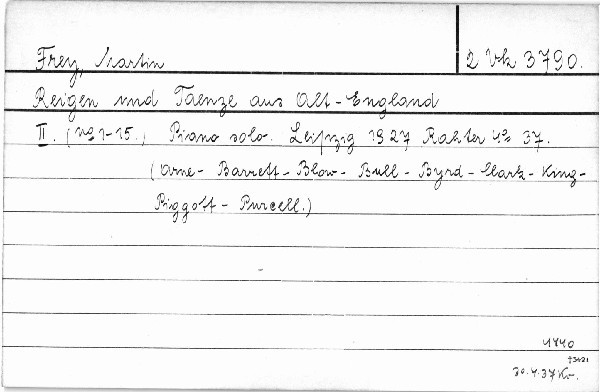 Frey, Martin
2 Vk 3790.
Reigen und Taenze aus Alt-England
II. (No 1-15.) Piano solo. Leipzig 1927 Rahter 4° 37.
(Arne - Barrett - Blow - Bull - Byrd - Clark - King -
Piggott - Purcell.)
4440
†3421
30.4.37 Kr.